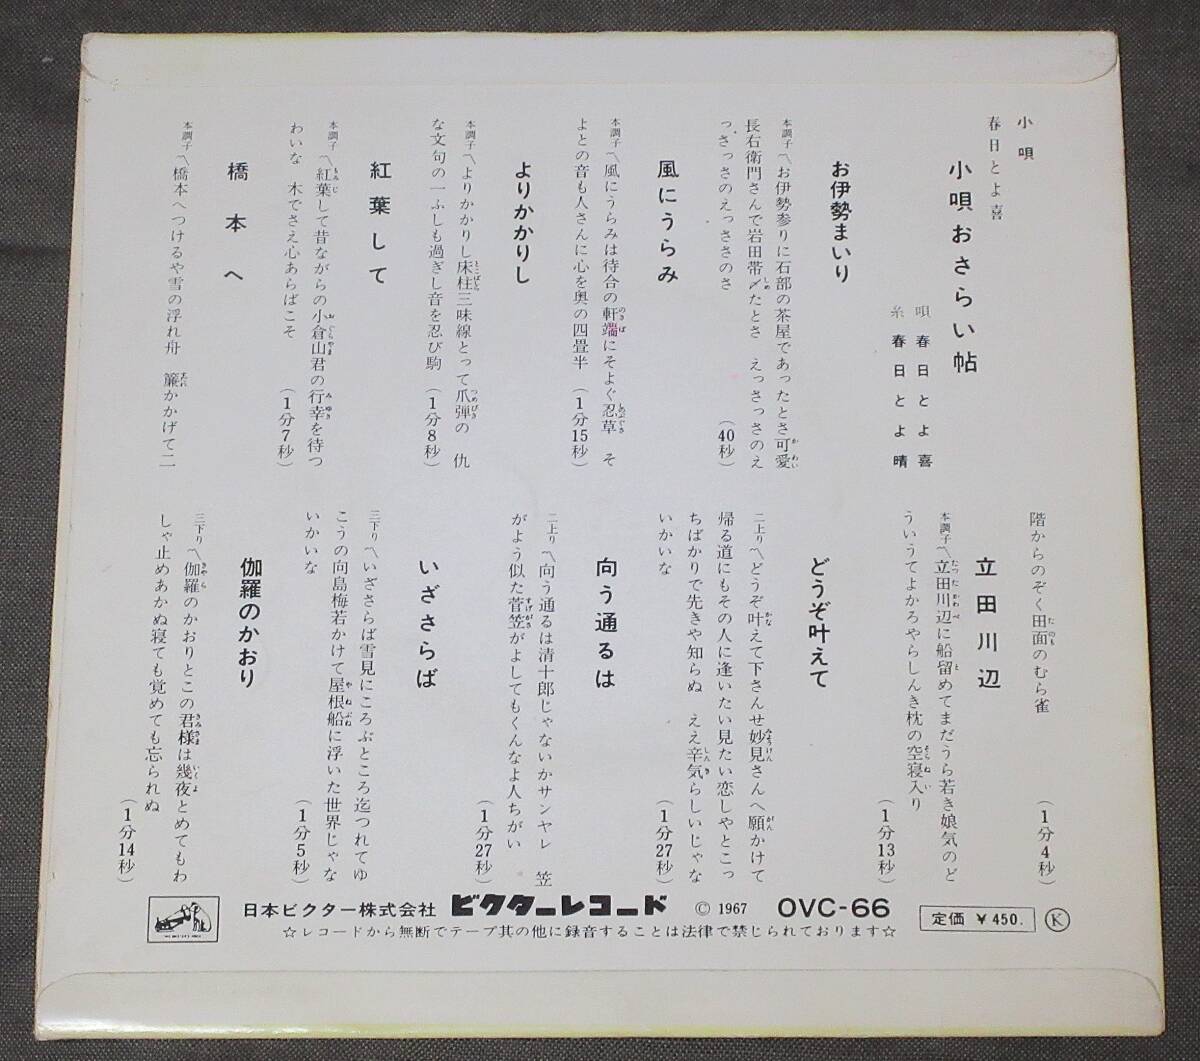 小唄
春日とよ喜
小唄おさらい帖
唄 春日とよ喜
糸 春日とよ晴
お伊勢まいり
本調子〽お伊勢参りに石部の茶屋であったとさ可愛
長右衛門さんで岩田帯〆たとさ えっさっさのえ
っさっさのえっささのさ
(40秒)
風にうらみ
本調子〽風にうらみは待合の軒端にそよぐ忍草 そ
よとの音も人さんに心を奥の四畳半
(1分15秒)
よりかかりし
本調子〽よりかかりし床柱三味線とって爪弾の 仇
な文句の一ふしも過ぎし音を忍び駒
(1分8秒)
紅葉して
本調子〽紅葉して昔ながらの小倉山君の行幸を待つ
わいな 木でさえ心あらばこそ
(1分7秒)
橋本へ
本調子〽橋本へつけるや雪の浮れ舟 簾かかげて二
階からのぞく田面のむら雀
(1分4秒)
立田川辺
本調子〽立田川辺に船留めてまだうら若き娘気のど
ういうてよかろやらしんき枕の空寝入り
(1分13秒)
どうぞ叶えて
二上り〽どうぞ叶えて下さんせ妙見さんへ願かけて
帰る道にもその人に逢いたい見たい恋しやとこっ
ちばかりで先きや知らぬ ええ辛気らしいじゃな
いかいな
(1分27秒)
向う通るは
二上り〽向う通るは清十郎じゃないかサンヤレ 笠
がよう似た菅笠がよしてもくんなよ人ちがい
(1分27秒)
いざさらば
三下り〽いざさらば雪見にころぶところ迄つれてゆ
こうの向島梅若かけて屋根船に浮いた世界じゃな
いかいな
(1分5秒)
伽羅のかおり
三下り〽伽羅のかおりとこの君様は幾夜とめてもわ
しゃ止めあかぬ寝ても覚めても忘られぬ
(1分14秒)
日本ビクター株式会社 ビクターレコード Ⓒ 1967 OVC-66 定価 ¥450. Ⓚ
☆レコードから無断でテープ其の他に録音することは法律で禁じられております☆